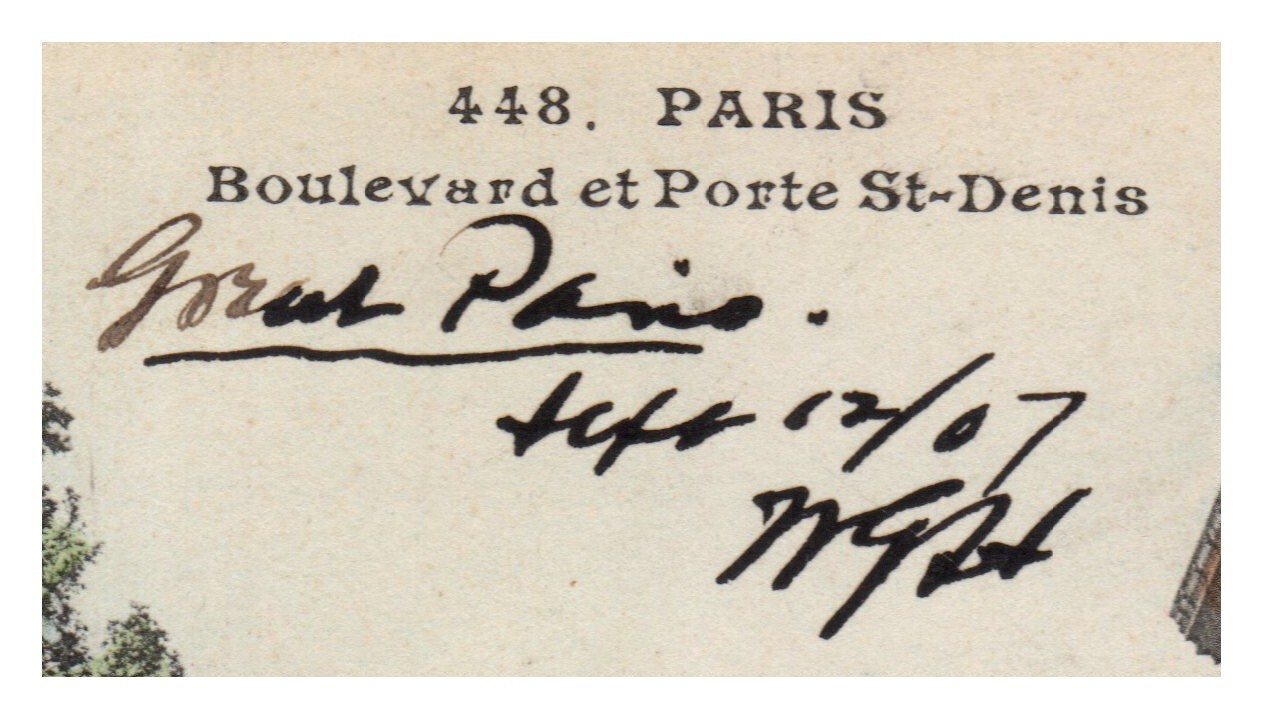 448. PARIS
Boulevard et Porte St-Denis
Great Paris.
Sept 12/07
WGH